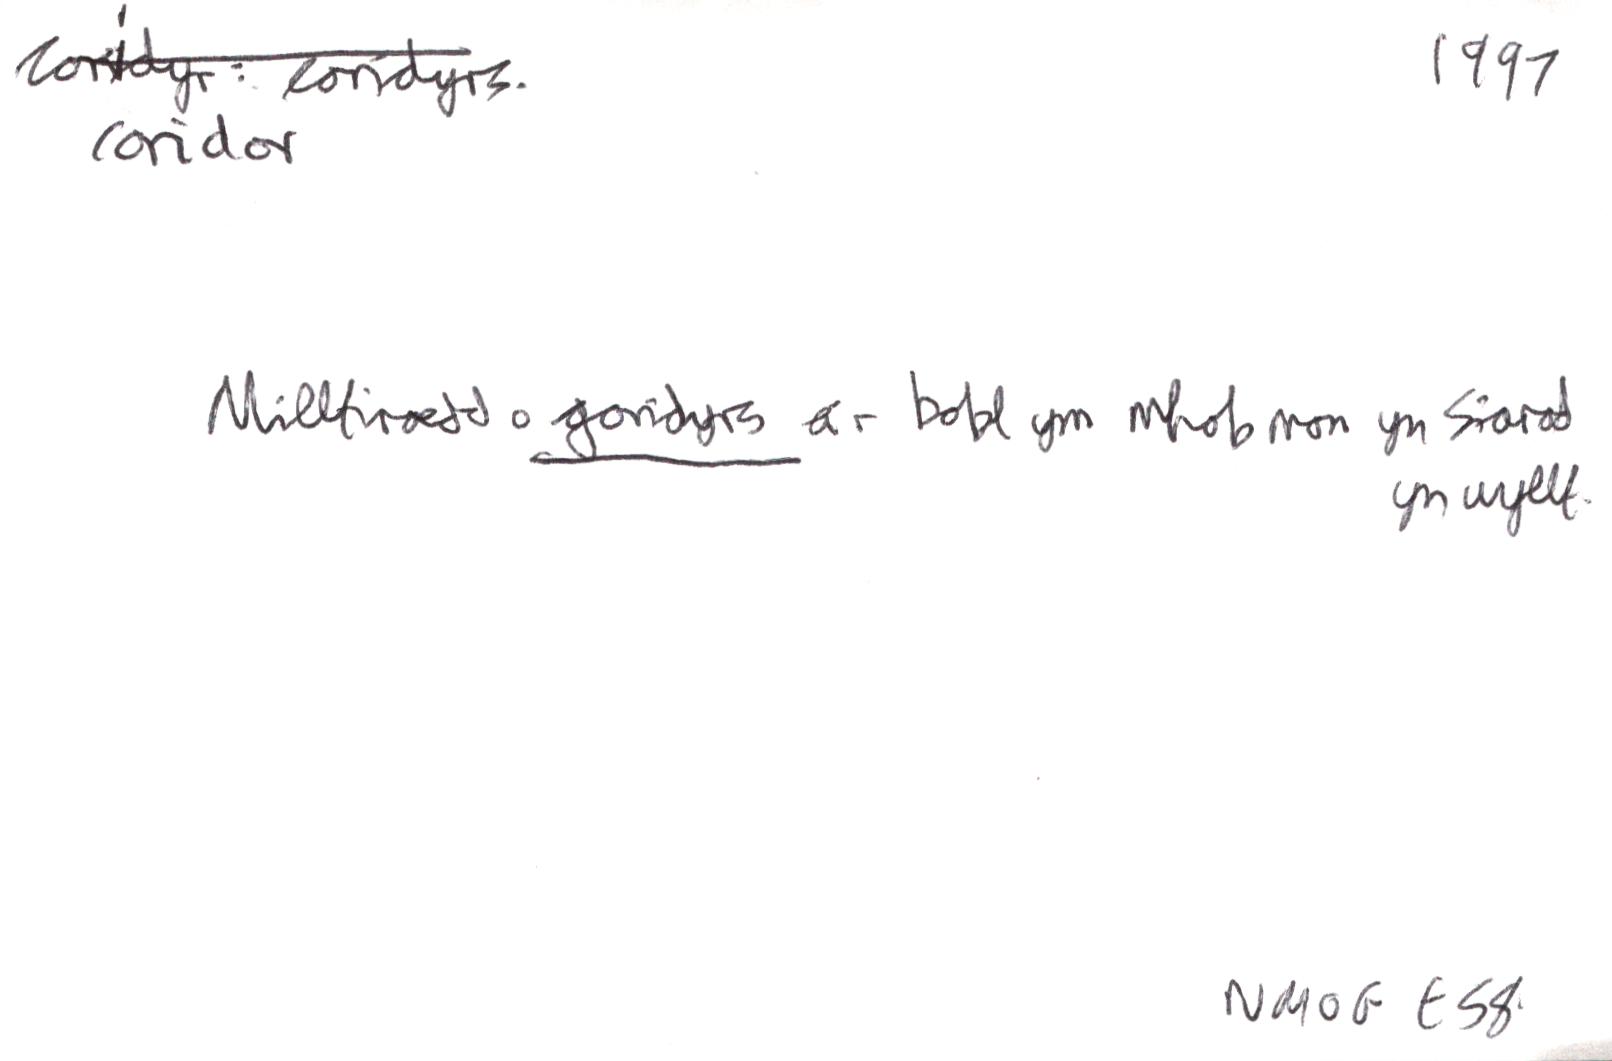 coridyr: coridyrs.
1997
coridor
Milltiroedd o goridyrs a'r bobl ym mhob man yn siarad
yn wyllt.
NMOG E58.